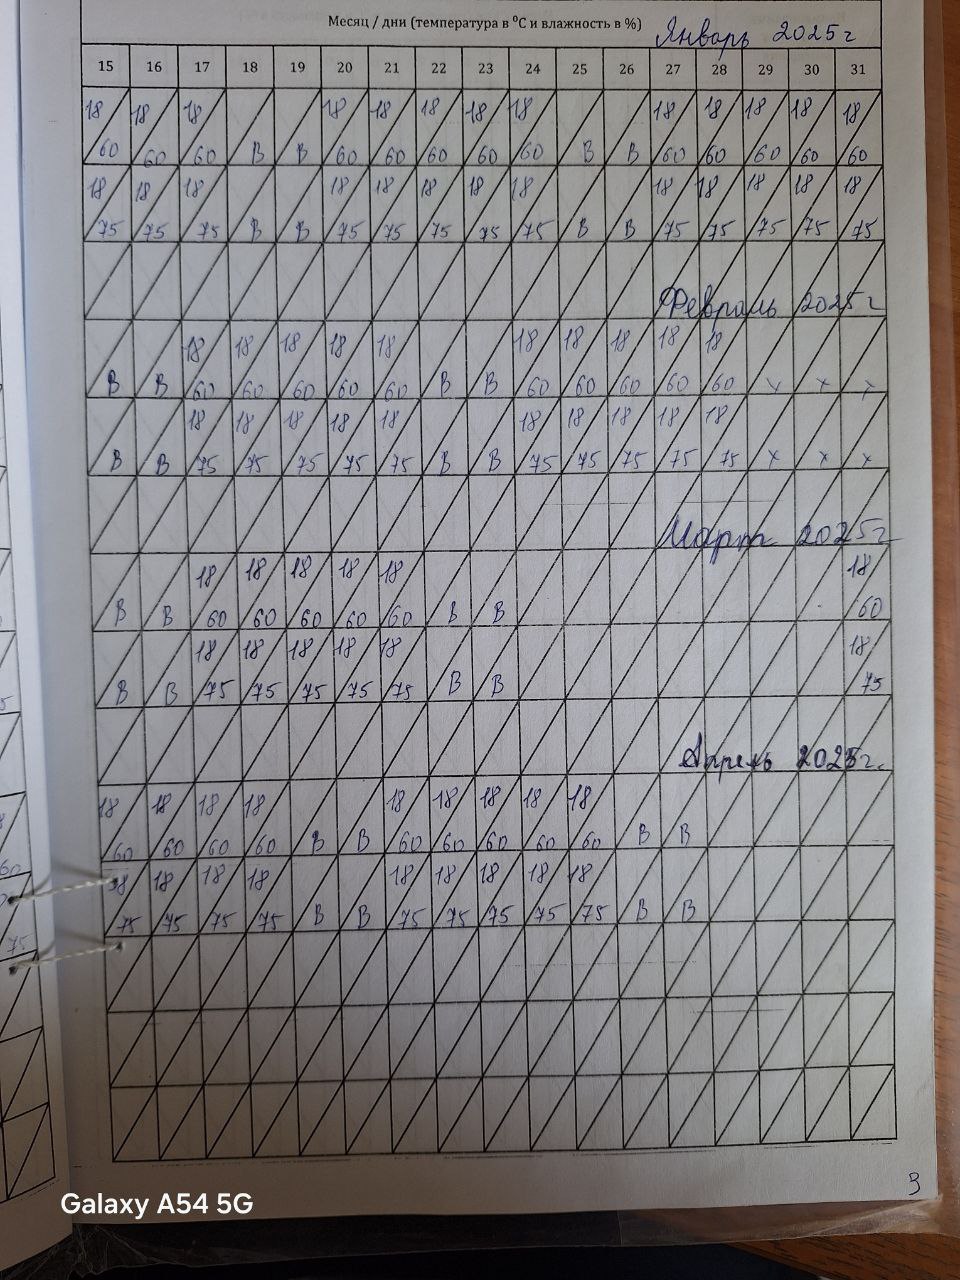 Месяц / дни (температура в ⁰С и влажность в %) Январь 2025г
15 16 17 18 19 20 21 22 23 24 25 26 27 28 29 30 31
18 18 18 18 18 18 18 18 18 18 18 18 18
60 60 60 В В 60 60 60 60 60 В В 60 60 60 60 60
18 18 18 18 18 18 18 18 18 18 18 18 18
75 75 75 В В 75 75 75 75 75 В В 75 75 75 75 75
Февраль 2025г
18 18 18 18 18 18 18 18 18 18
В В 60 60 60 60 60 В В 60 60 60 60 60 х х х
18 18 18 18 18 18 18 18 18 18
В В 75 75 75 75 75 В В 75 75 75 75 75 х х х
Март 2025г
18 18 18 18 18 18
В В 60 60 60 60 60 В В 60
18 18 18 18 18 18
В В 75 75 75 75 75 В В 75
Апрель 2025г.
18 18 18 18 18 18 18 18 18
60 60 60 60 В В 60 60 60 60 60 В В
18 18 18 18 18 18 18 18 18
75 75 75 75 В В 75 75 75 75 75 В В
60
75
3
Galaxy A54 5G